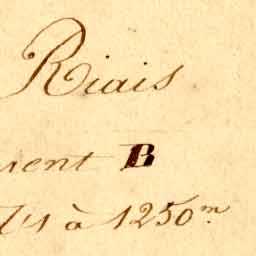 Riais
ent B
1 à 1250 m